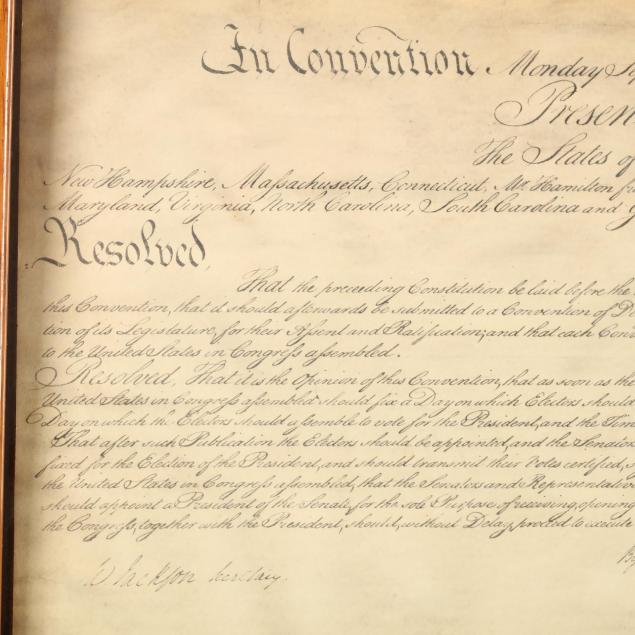 In Convention Monday
Presen
The States of
New Hampshire, Massachusetts, Connecticut, Mr. Hamilton
Maryland, Virginia, North Carolina, South Carolina and
Resolved,
That the preceeding Constitution be laid before the
this Convention, that it should afterwards be submitted to a Convention of De
tion of its Legislature, for their Assent and Ratification; and that each Conv
to the United States in Congress assembled.
Resolved, That it is the Opinion of this Convention, that as soon as the
United States in Congress assembled should fix a Day on which Electors should
Day on which the Electors should assemble to vote for the President, and the Time
That after such Publication the Electors should be appointed, and the Senators
fixed for the Election of the President, and should transmit their Votes certified,
the United States in Congress assembled, that the Senators and Representatives
should appoint a President of the Senate, for the sole Purpose of receiving, opening
the Congress, together with the President, should, without Delay, proceed to execute
By
W Jackson Secretary.